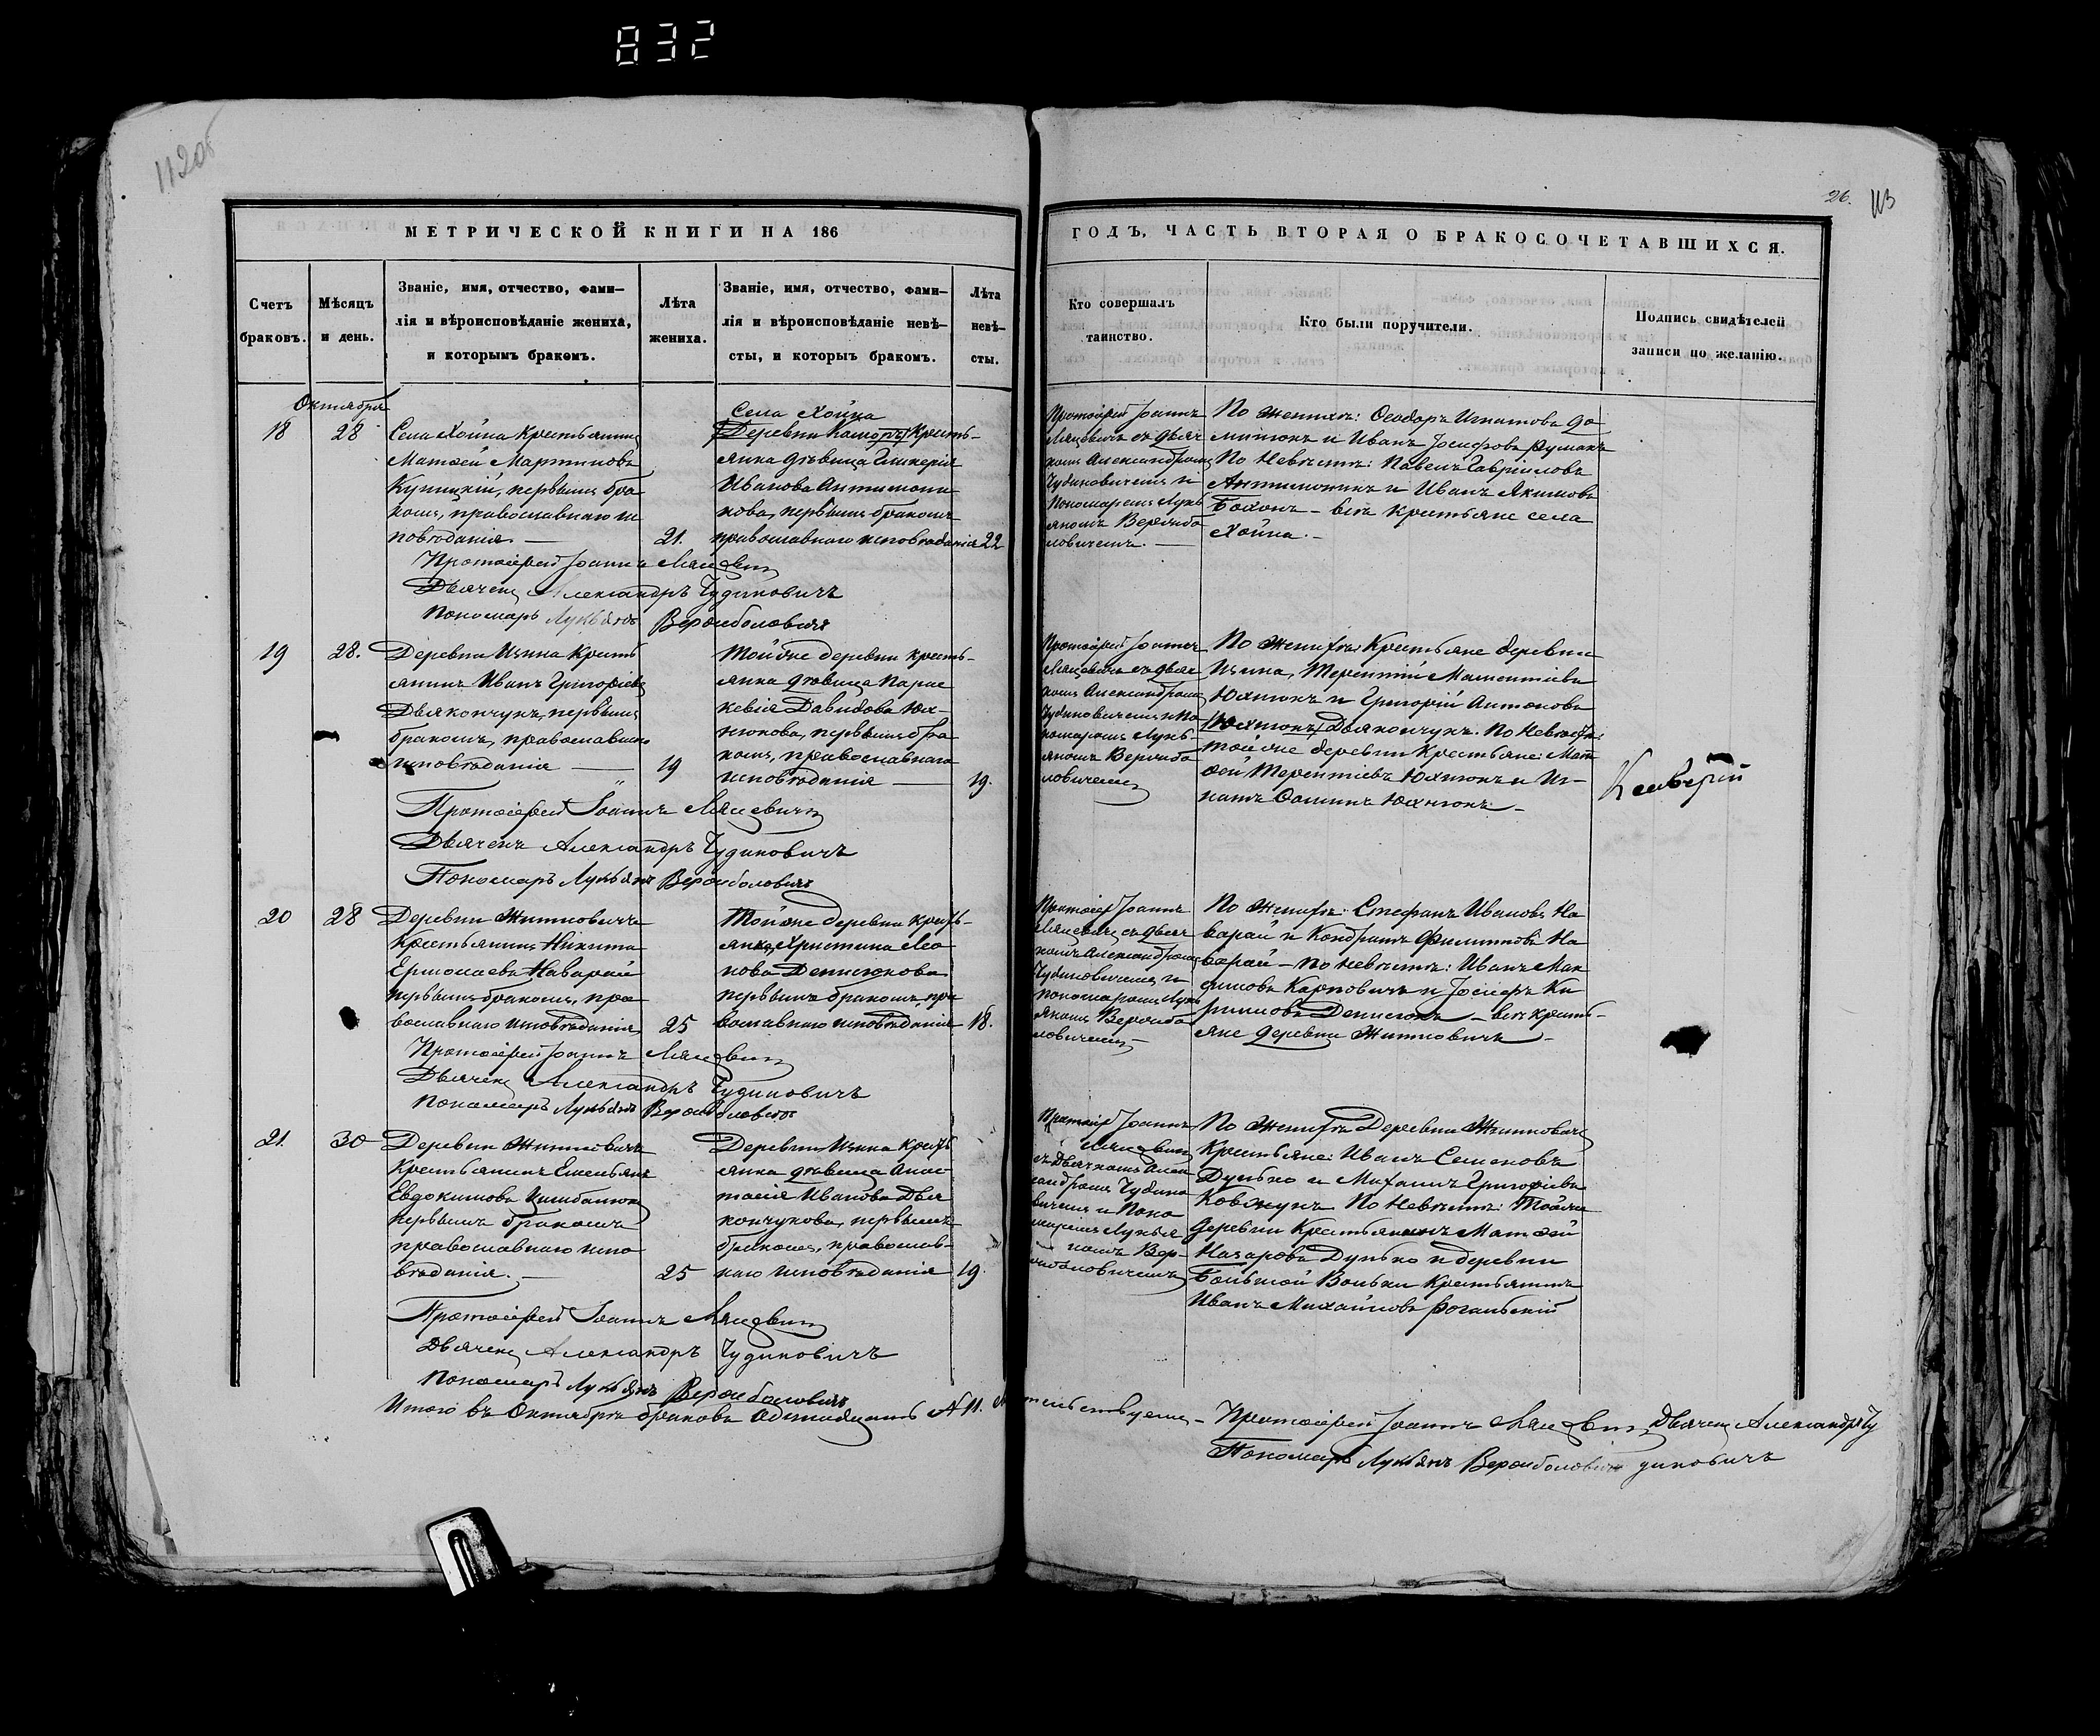 832
112об
26. 113
МЕТРИЧЕСКОЙ КНИГИ НА 186
ГОДЪ, ЧАСТЬ ВТОРАЯ О БРАКОСОЧЕТАВШИХСЯ.
Счетъ
браковъ.
Мѣсяцъ
и день.
Званіе, имя, отчество, фами-
лія и вѣроисповѣданіе жениха,
и которымъ бракомъ.
Лѣта
жениха.
Званіе, имя, отчество, фами-
лія и вѣроисповѣданіе невѣ-
сты, и которыъ бракомъ.
Лѣта
невѣ-
сты.
Кто совершалъ
таинство.
Кто были поручители.
Подпись свидѣтелей
записи по желанію.
Октября
18
28
Села Хойна крестьянинъ
Матѳей Мартиновъ
Купицкій, первымъ бра
комъ, православнаго ис
повѣданія. —
21.
Села Хойна
Деревни Крестъ-
янка дѣвица Гликерія
Иванова Антимони
кова, первымъ бракомъ
православнаго исповѣданія
22
Протоіерей Іоаннъ
Мацевичъ съ дьяч
комъ Александромъ
Чудиновичемъ и
Пономаремъ Лукь
яномъ Верниба
ловичемъ. —
По женихѣ: Ѳеодоръ Игнатовъ До
минюкъ и Иванъ Іосифовъ
По невѣстѣ: Павелъ Гавріиловъ
Антимоникъ и Иванъ Якимовъ
— всѣ крестьяне села
Хойна. —
Протоіерей Іоаннъ
Дьячекъ Александръ Чудиновичъ
Пономарь Лукьянъ
19
28.
Деревни Изина Кресть
янинъ Иванъ Григорьевъ
Дьякончукъ, первымъ
бракомъ, православнаго
исповѣданія —
19
Тойже деревни кресть-
янка дѣвица Парас
кевія Давидова Юх-
нюкова, первымъ бра
комъ, православнаго
исповѣданія —
19.
Протоіерей Іоаннъ
съ дьяч
комъ Александромъ
Чудиновичемъ и По
номаремъ Лукь-
яномъ
ловичемъ
По женихѣ Крестьяне деревни
Изина, Терентій
Юхнюкъ и Григорій Антоновъ
Юхнюкъ Дьякончукъ. По невѣстѣ:
тойже деревни Крестьяне: Мат
ѳей Терентіевъ Юхнюкъ и Иг-
натъ Ѳоминъ Юхнюкъ. —
Протоіерей Іоаннъ
Дьячекъ Александръ Чудиновичъ
Пономарь Лукьянъ
20
28
Деревни Житновичъ
Крестьянинъ Никита
Ермолаевъ Наварай
первымъ бракомъ, пра
вославнаго исповѣданія
25
Тойже деревни кресть-
янка, Христина Лео
нова Денисюкова
первымъ бракомъ, пра
вославнаго исповѣданія
18.
Протоіер Іоаннъ
съ дьяч
комъ Александромъ
Чудиновичемъ и
пономаремъ Лукь
яномъ
ловичемъ —
По женихѣ: Стефанъ Ивановъ На
варай и Кондратъ Филиповъ На
варай — по невѣстѣ: Иванъ Мак
симовъ Карповичъ и Іосифъ Ки
риловъ Денисюкъ — всѣ кресть-
яне деревни Житновичъ —
Протоіерей Іоаннъ
Дьячекъ Александръ Чудиновичъ
Пономарь Лукьянъ
21.
30
Деревни Житновичъ
Крестьянинъ Емельянъ
Евдокимовъ Цимбалюкъ
первымъ бракомъ
православнаго испо
вѣданія. —
25
Деревни Изина Кресть
янка дѣвица Анас-
тасія Иванова Дья
кончукова, первымъ
бракомъ, православ-
наго исповѣданія
19.
Протоіер Іоаннъ
съ Дьячкомъ Алек
сандромъ Чудино
вичемъ и Поно
маремъ Лукья
номъ Вер-
По женихѣ Деревни Житновичъ
Крестьяне: Иванъ Семеновъ
Дунько и Михаилъ Григорьевъ
Ковжукъ По невѣстѣ: Тойже
деревни Крестьянинъ Матѳей
Назаровъ Дунько и деревни
Большой Вольки Крестьянинъ
Иванъ Михайловъ Рогальскій
Протоіерей Іоаннъ
Дьячекъ Александръ Чудиновичъ
Пономарь Лукьянъ
Итого въ Октябрѣ браковъ одинадцать № 11.
Протоіерей Іоаннъ Дьячекъ Александръ Чу
Пономарь Лукьянъ диновичъ